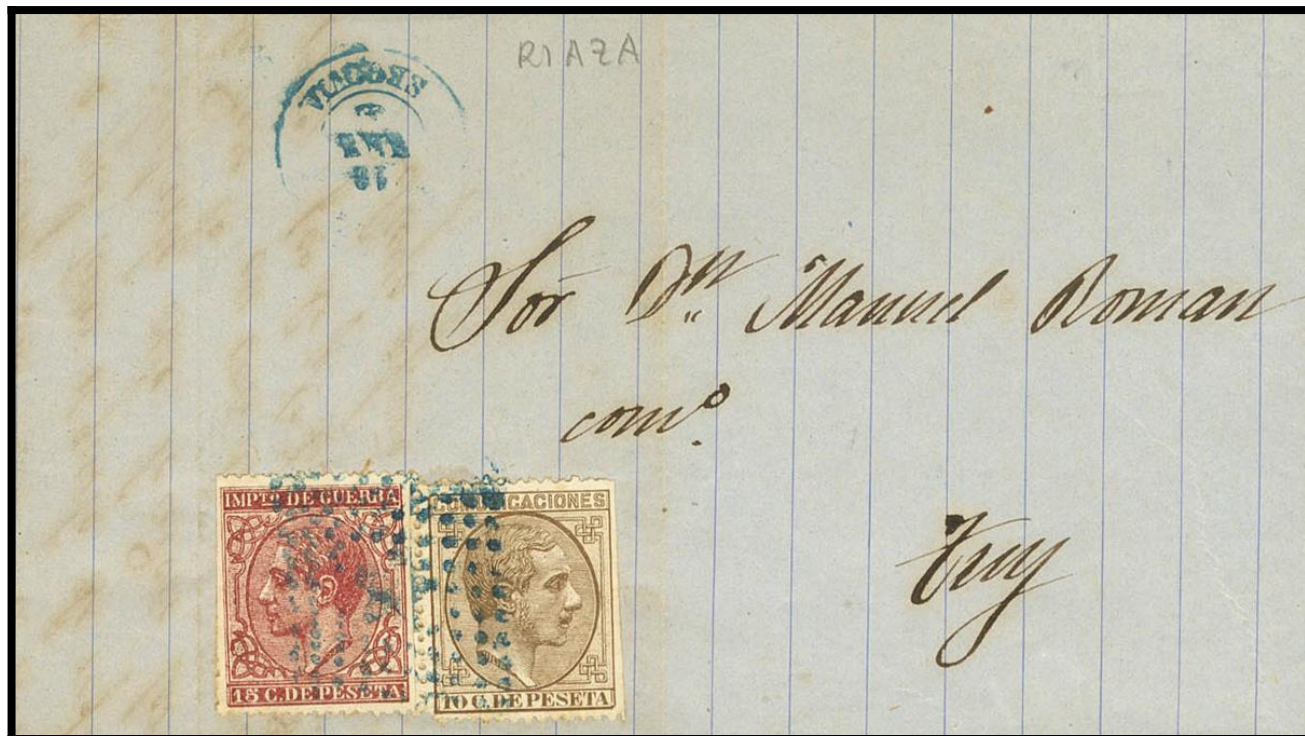 RIAZA
SEGOVIA
Sor Dn Manuel Roman
como
Tuy
IMPTO DE GUERRA
15 C. DE PESETA
COMUNICACIONES
10 C. DE PESETA